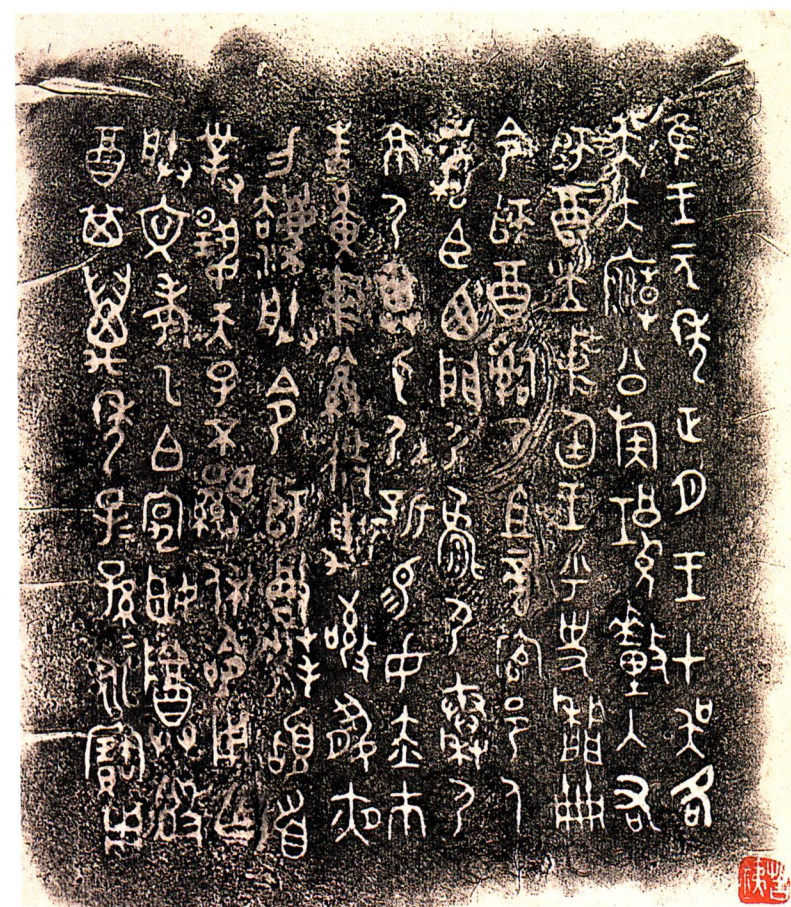 隹王元年正月王才吳各
吳大廟公族𩁹釐入右
師酉立中廷王乎史牆冊
命師酉𤔲乃且啻官邑人
虎臣西門尸㚇尸秦尸
京尸畀身尸新易女赤巿
朱黃中𦃃攸勒敬夙夜
勿灋朕令師酉拜𩒨首
對揚天子不顯休命用乍
朕文考乙白宄姬尊𣪘
酉其萬年子子孫孫永寶用